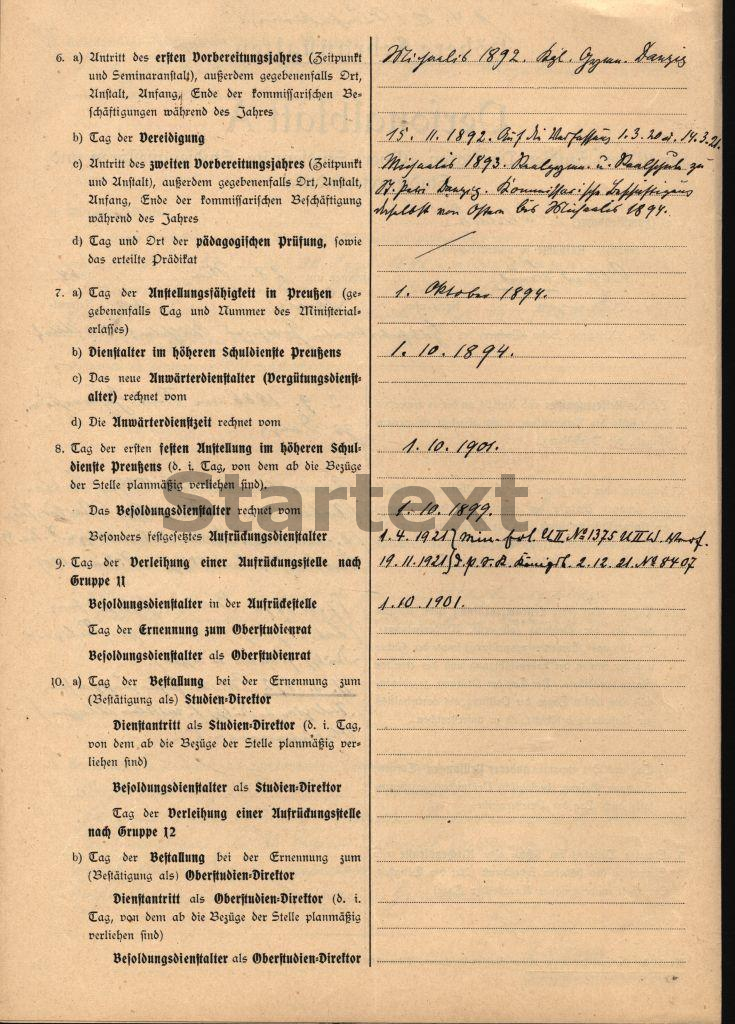 6. a) Antritt des ersten Vorbereitungsjahres (Zeitpunkt
und Seminaranstalt), außerdem gegebenenfalls Ort,
Anstalt, Anfang, Ende der kommissarischen Be-
schäftigungen während des Jahres
Michaelis 1892. Kgl. Gymn. Danzig
b) Tag der Vereidigung
15. 11. 1892. Auf die Verfassung 1.3.20 u. 14.3.21.
c) Antritt des zweiten Vorbereitungsjahres (Zeitpunkt
und Anstalt), außerdem gegebenenfalls Ort, Anstalt,
Anfang, Ende der kommissarischen Beschäftigung
während des Jahres
Michaelis 1893. Realgymn. u. Realschule zu
St. Petri Danzig. Kommissarische Beschäftigung
daselbst von Ostern bis Michaelis 1894.
d) Tag und Ort der pädagogischen Prüfung, sowie
das erteilte Prädikat
7. a) Tag der Anstellungsfähigkeit in Preußen (ge-
gebenenfalls Tag und Nummer des Ministerial-
erlasses)
1. Oktober 1894.
b) Dienstalter im höheren Schuldienste Preußens
1. 10. 1894.
c) Das neue Anwärterdienstalter (Vergütungsdienst-
alter) rechnet vom
d) Die Anwärterdienstzeit rechnet vom
8. Tag der ersten festen Anstellung im höheren Schul-
dienste Preußens (d. i. Tag, von dem ab die Bezüge
der Stelle planmäßig verliehen sind).
1. 10. 1901.
Das Besoldungsdienstalter rechnet vom
1. 10. 1899.
Besonders festgesetztes Aufrückungsdienstalter
1. 4. 1921 Min. Erl. U II No 1375 U II W.
9. Tag der Verleihung einer Aufrückungsstelle nach
Gruppe 11
19. 11. 1921 d. P. S. K. Königsb. 2. 12. 21 No 8407
Besoldungsdienstalter in der Aufrückestelle
1. 10. 1901.
Tag der Ernennung zum Oberstudienrat
Besoldungsdienstalter als Oberstudienrat
10. a) Tag der Bestallung bei der Ernennung zum
(Bestätigung als) Studien-Direktor
Dienstantritt als Studien-Direktor (d. i. Tag,
von dem ab die Bezüge der Stelle planmäßig ver-
liehen sind)
Besoldungsdienstalter als Studien-Direktor
Tag der Verleihung einer Aufrückungsstelle
nach Gruppe 12
b) Tag der Bestallung bei der Ernennung zum
(Bestätigung als) Oberstudien-Direktor
Dienstantritt als Oberstudien-Direktor (d. i.
Tag, von dem ab die Bezüge der Stelle planmäßig
verliehen sind)
Besoldungsdienstalter als Oberstudien-Direktor
Startext